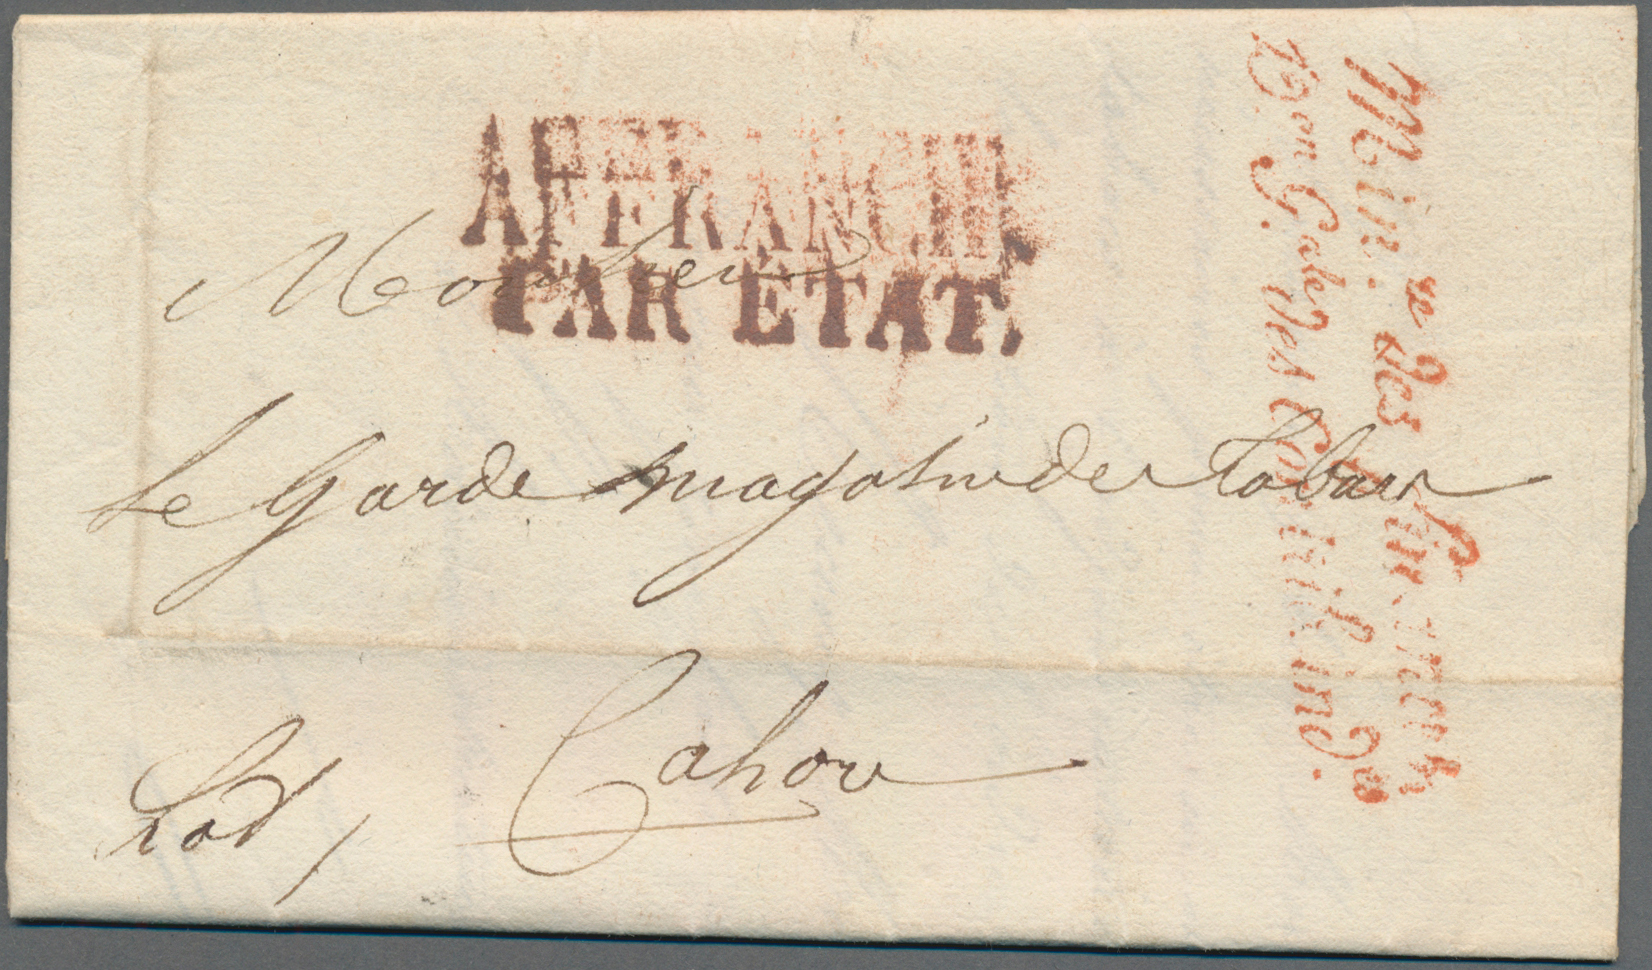 AFFRANCHI
PAR ÉTAT,
Monsieur
Le garde magasin des tabacs
Cahors
Lot /
Min.re des finances
Don G.ale des Cont. ind.